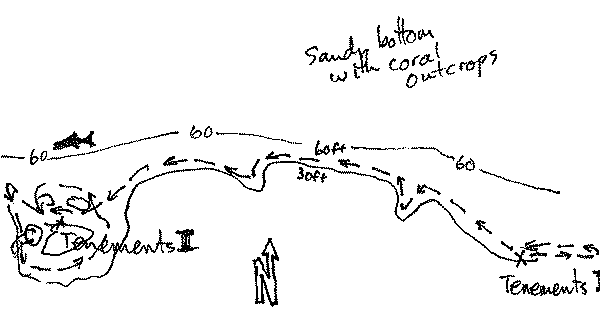 Sandy bottom
with coral
outcrops
60
60
60ft
60
30ft
Tenements II
N
Tenements I